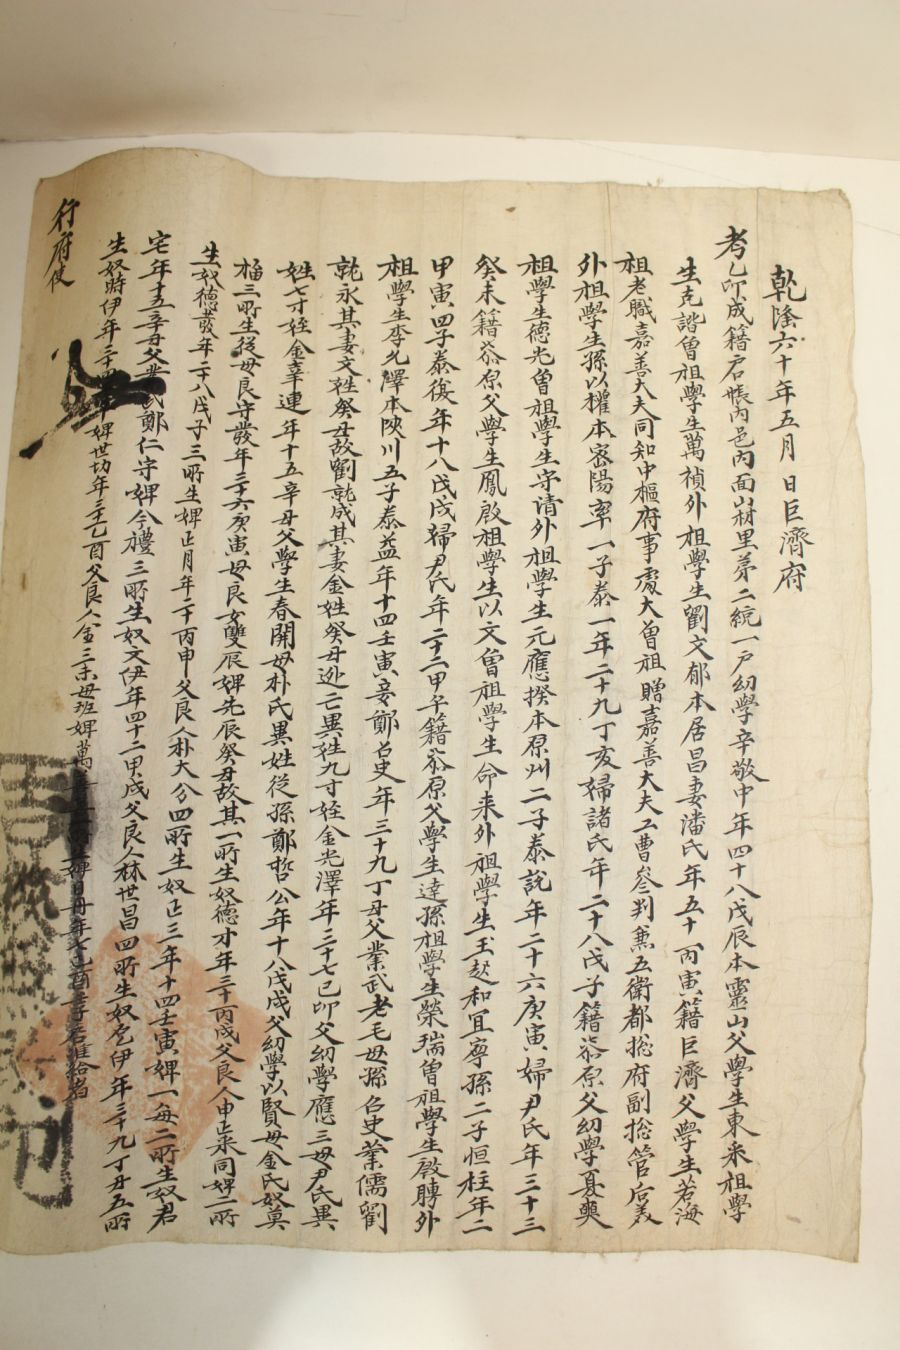 乾隆六十年五月 日巨濟府
考乙卯成籍戶帳內邑內面山村里第二統一戶幼學辛敬中年四十八戊辰本靈山父學生東采祖學
生克諧曾祖學生萬禎外祖學生劉文郁本居昌妻潘氏年五十丙寅籍巨濟父學生若海
祖老職嘉善大夫同知中樞府事處大曾祖贈嘉善大夫工曹參判兼五衛都摠府副摠管后義
外祖學生孫以權本密陽率一子泰一年二十九丁亥婦諸氏年二十八戊子籍漆原父幼學夏奭
祖學生德光曾祖學生守清外祖學生元應揆本原州二子泰說年二十六庚寅婦尹氏年三十三
癸未籍漆原父學生鳳啟祖學生以文曾祖學生命来外祖學生玉起和冝寧孫二子恒柱年二
甲寅四子泰復年十八戊戌婦尹氏年二十二甲午籍漆原父學生達孫祖學生榮瑞曾祖學生啟騁外
祖學生李允澤本陜川五子泰益年十四壬寅妾鄭召史年三十九丁丑父業武老毛母孫召史業儒劉
就永其妻文姓癸丑故劉就成其妻金姓癸丑逃亡異姓九寸姪金光澤年三十七己卯父幼學應三母尹氏異
姓七寸姪金幸連年十五辛丑父學生春開母朴氏異姓從孫鄭哲公年十八戊戌父幼學以賢母金氏奴莫
福三所生從母良守發年三十六庚寅母良女雙辰婢先辰癸丑故其一所生奴德才年三十丙戌父良人申采同婢二所
生奴德發年二十八戊子三所生婢正月年二十丙申父良人朴大分四所生奴正三年十四壬寅婢一每二所生奴君
宅年十五辛丑父業武鄭仁守婢今禮三所生奴文伊年四十二甲戌父良人林世昌四所生奴乭伊年三十九丁丑五所
生奴時伊年三十 婢世切年三十乙酉父良人金三 母班婢萬 婢日丹年七己酉 准給者
行府使